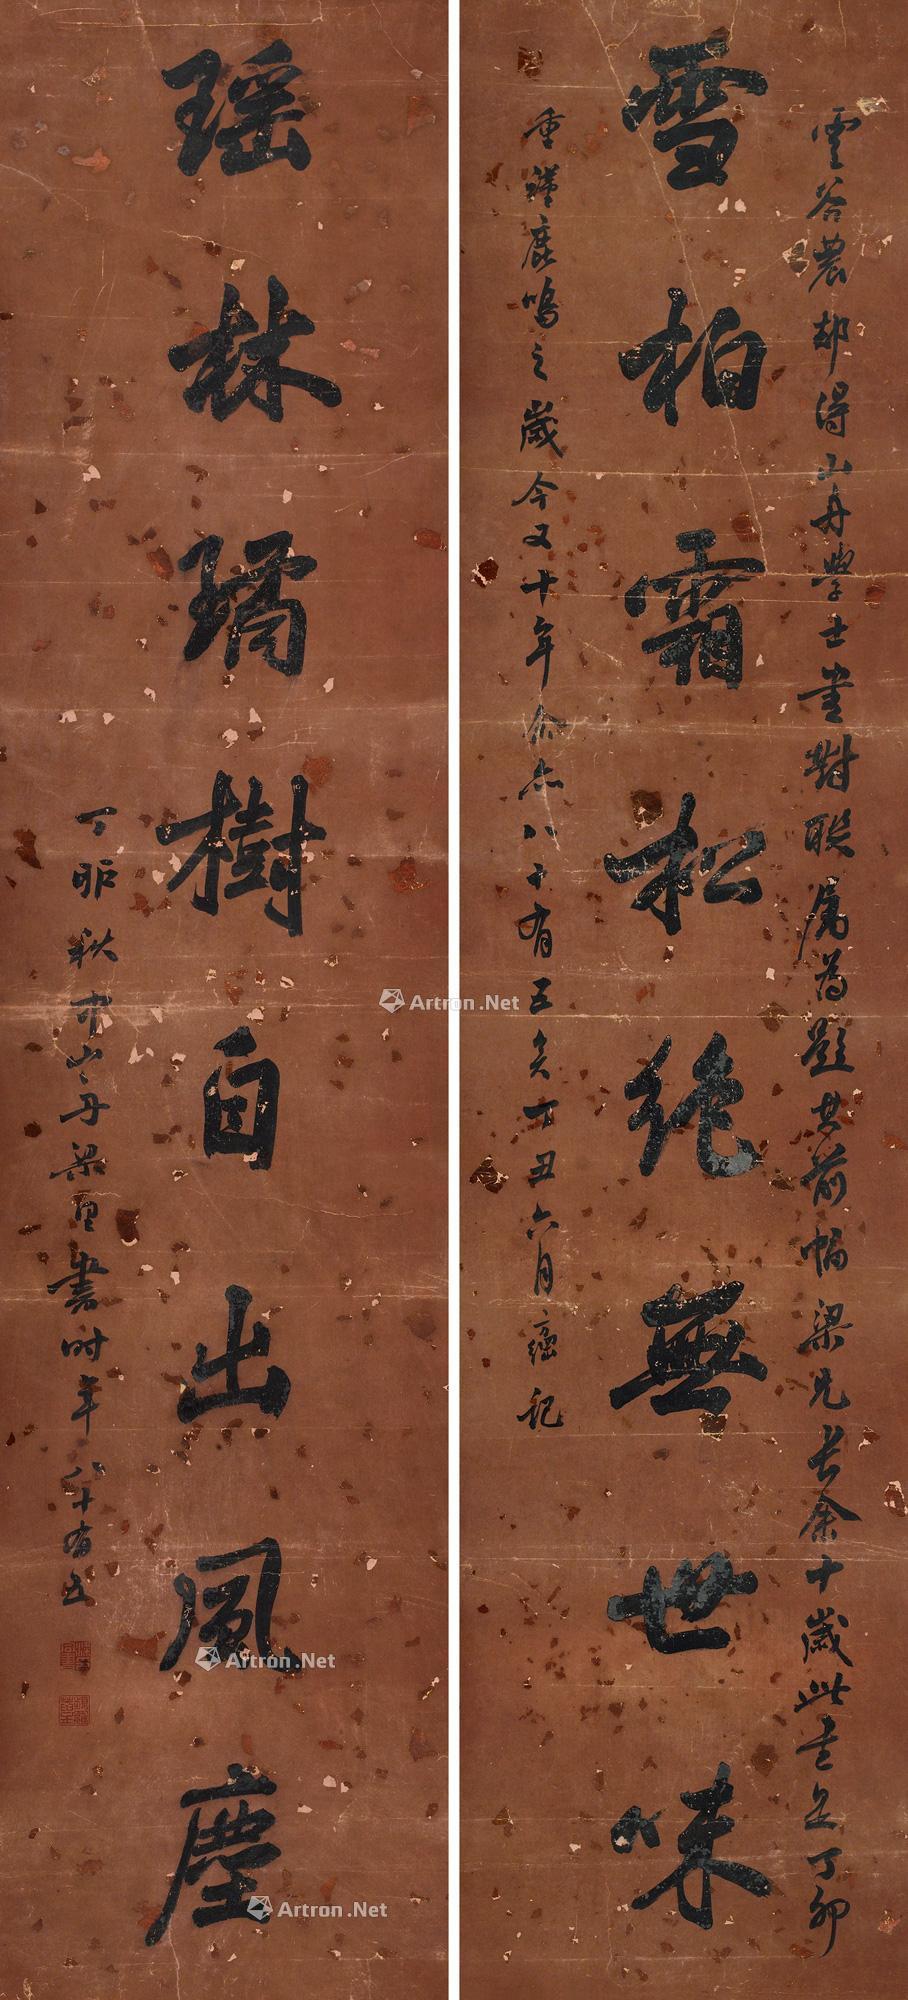 雲谷農部得山舟學士書對聯屬為題其前幅梁兄長余十歲此書是丁卯
雪柏霜松絕無世味
重讌鹿鳴之歲今又十年余亦八十有五矣丁丑六月瑤記
瑶林璚樹自出風塵
丁卯秋中山舟梁同書時年八十有五
Artron.Net
Artron.Net
Artron.Net